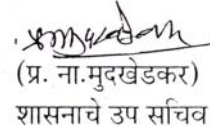 (प्र. ना.मुदखेडकर)
शासनाचे उप सचिव